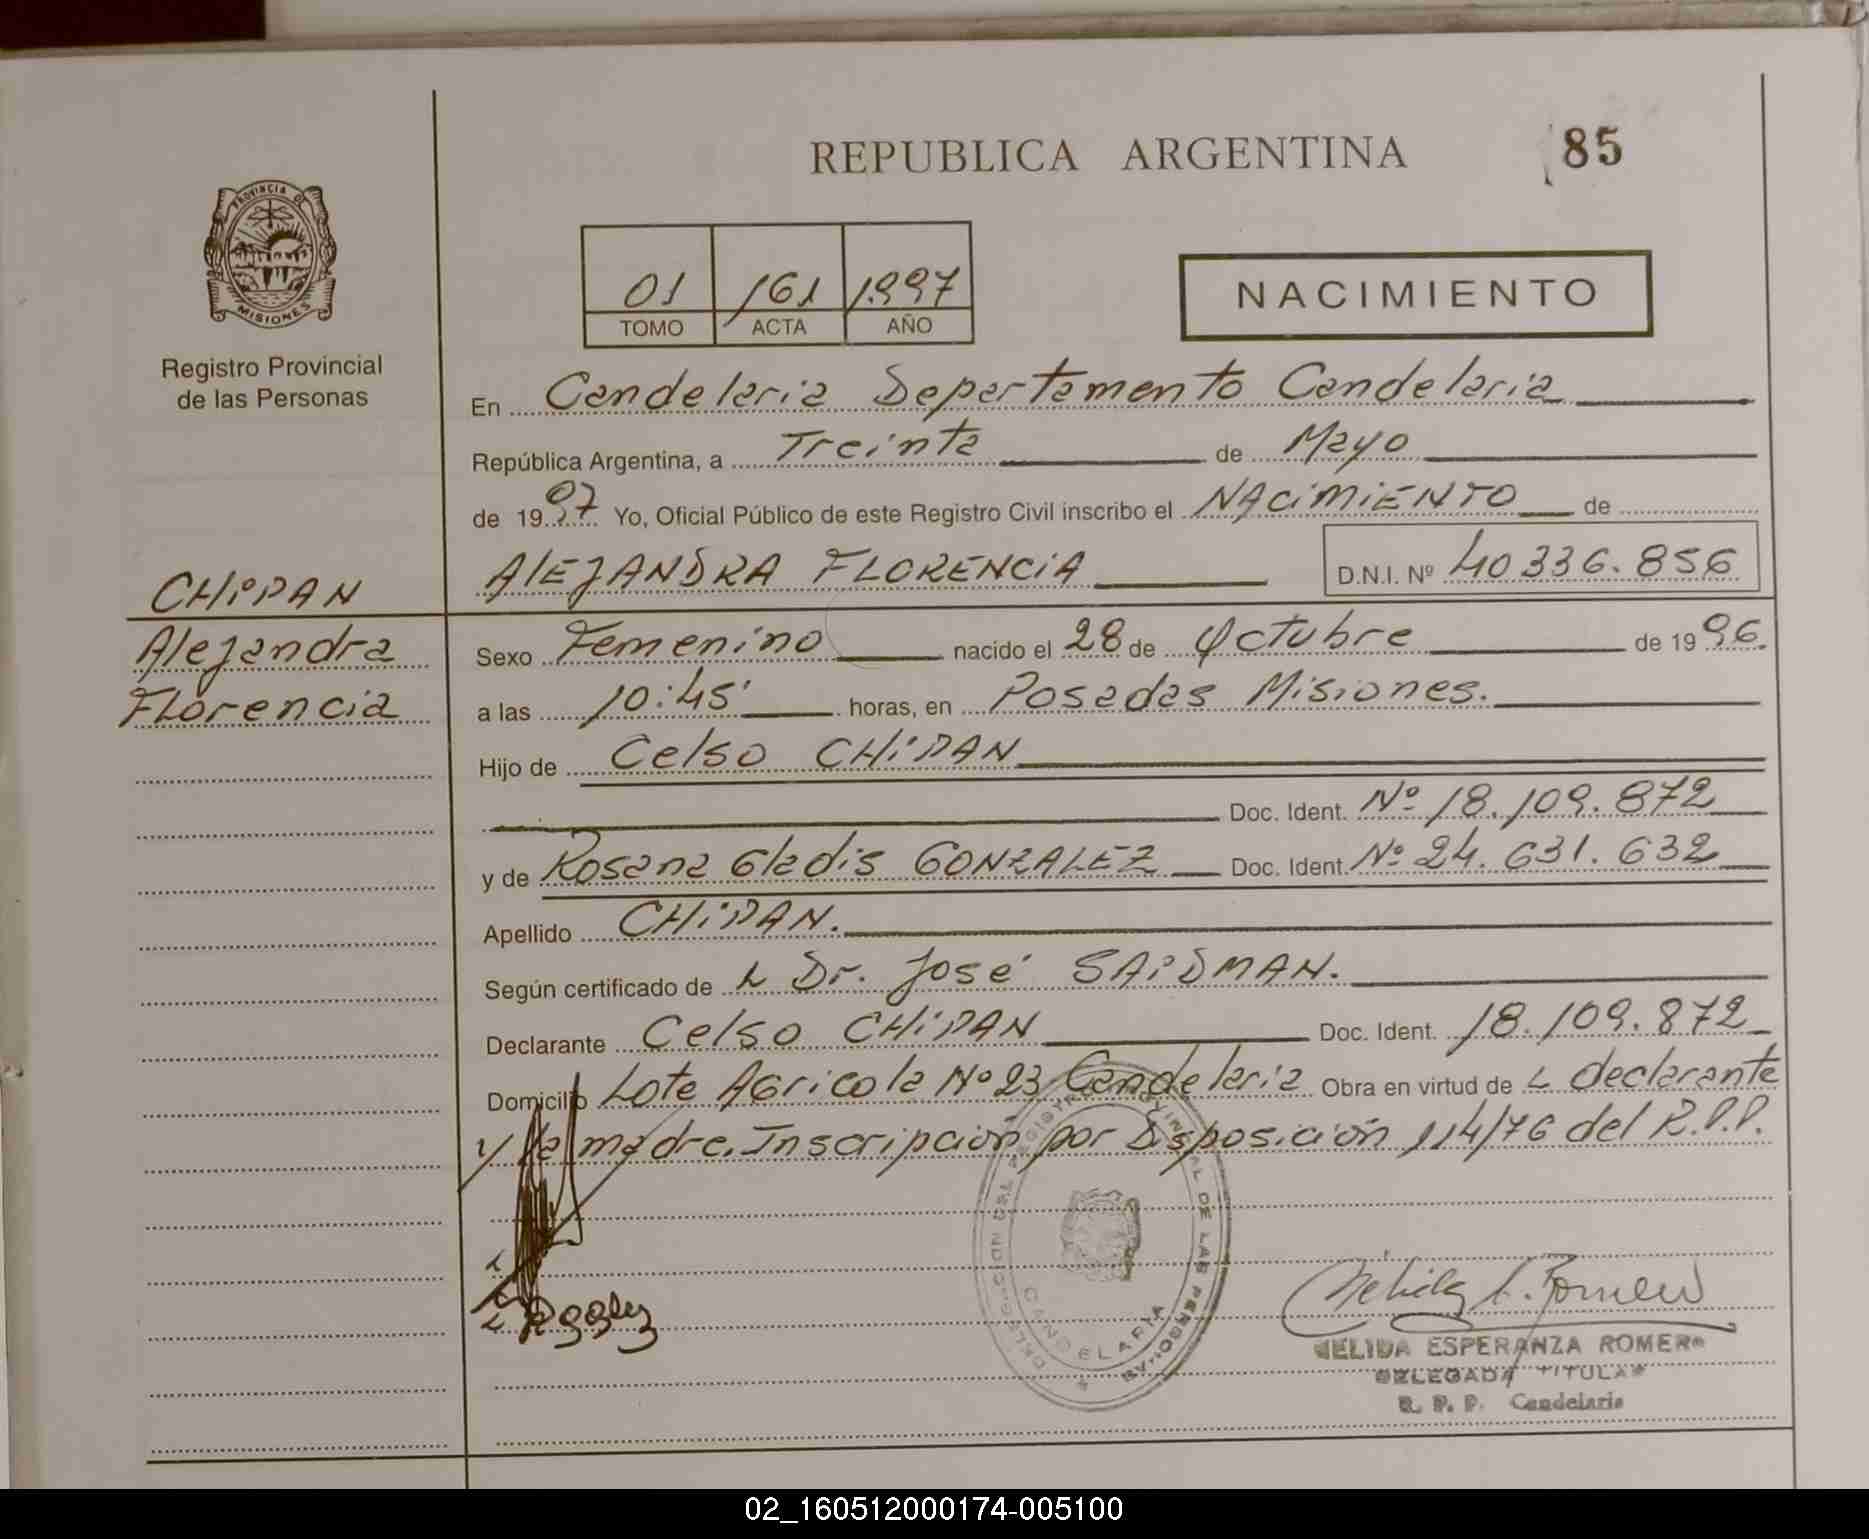 REPUBLICA ARGENTINA
85
PROVINCIA DE
MISIONES
Registro Provincial
de las Personas
01 161 1.997
TOMO ACTA AÑO
NACIMIENTO
En Candelaria Departamento Candelaria
República Argentina, a Treinta de Mayo
de 1997 Yo, Oficial Público de este Registro Civil inscribo el NACIMIENTO de
CHIPAN
Alejandra
Florencia
ALEJANDRA FLORENCIA D.N.I. Nº 40336.856
Sexo Femenino nacido el 28 de Octubre de 1996.
a las 10:45' horas, en Posadas Misiones.
Hijo de Celso CHIPAN
Doc. Ident. Nº 18.109.872
y de Rosana Gladis GONZALEZ Doc. Ident. Nº 24.631.632
Apellido CHIPAN.
Según certificado de L Dr. José SAIDMAN.
Declarante Celso CHIPAN Doc. Ident. 18.109.872
Domicilio Lote Agricola Nº 23 Candelaria Obra en virtud de L declarante
y la madre. Inscripción por Disposición 114/76 del R.P.P.
CANDELARIA
NELIDA ESPERANZA ROMERO
DELEGADA TITULAR
R. P. P. Candelaria
02_160512000174-005100